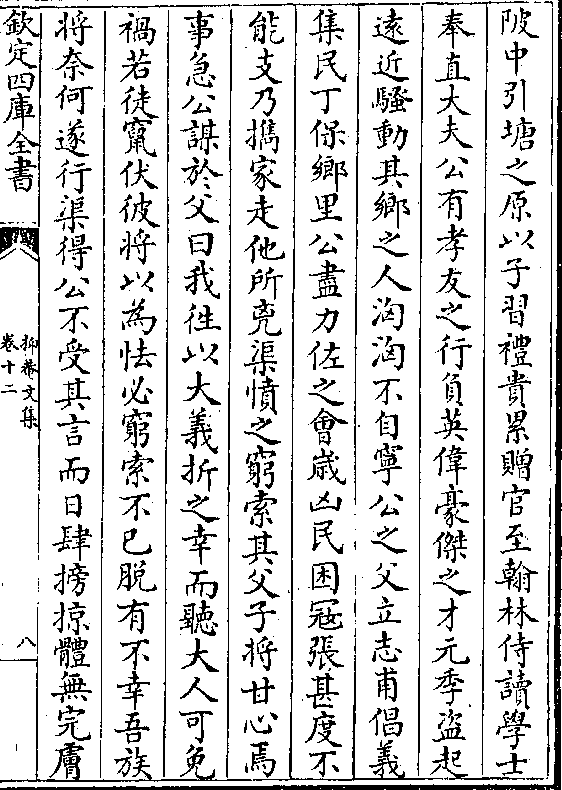 陂中引塘之原以子習禮貴累贈官至翰林侍讀學士
奉直大夫公有孝友之行負英偉豪傑之才元季盗起
遠近騷動其鄉之人洶洶不自寧公之父立志甫倡義
集民丁保鄉里公盡力佐之會歳凶民困冦張甚度不
能支乃擕家走他所兇渠憤之窮索其父子將甘心焉
事急公謀於父曰我徃以大義折之幸而聽大人可免
禍若徒竄伏彼將以為怯必窮索不已脱有不幸吾族
将奈何遂行渠得公不受其言而日肆搒掠體無完膚
欽定四庫全書
抑菴文集
卷十二
八